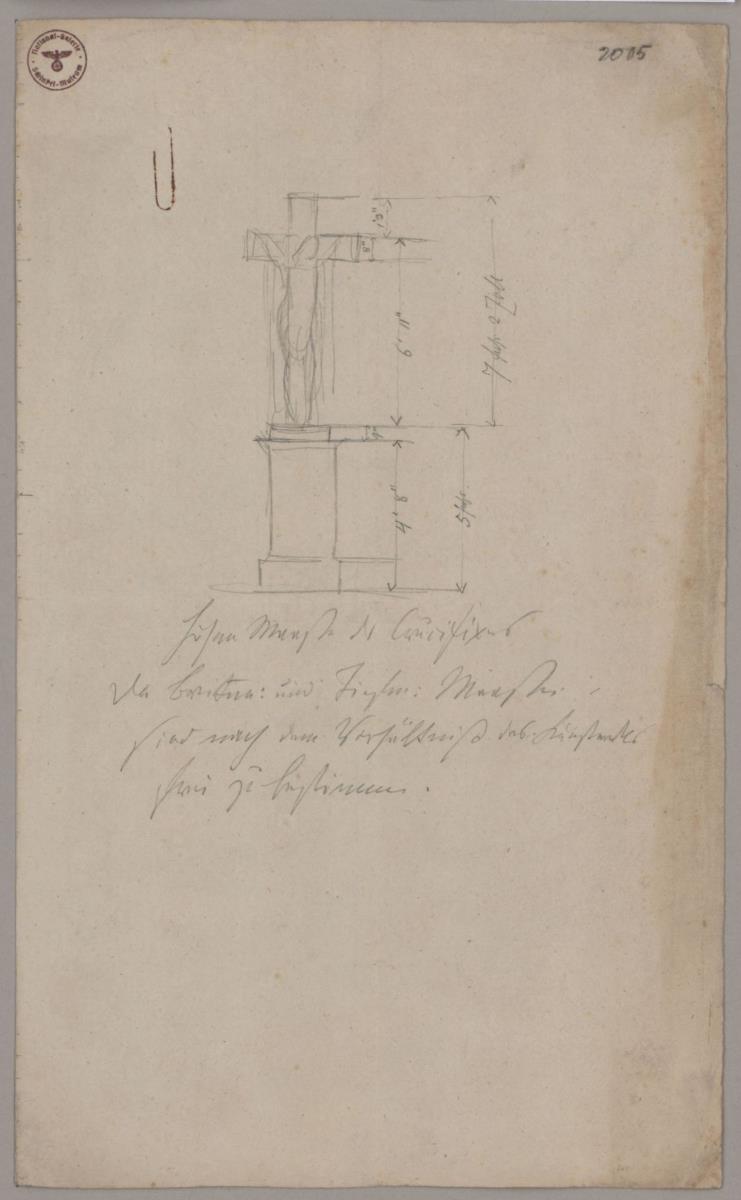 National-Galerie
Schinkel-Museum
2015
1' 3"
8"
6' 11"
7 fuß 2 Zoll
4"
4' 8"
5 fuß
Höhen Maaße des Crucifixes
Die breiten: und Maaße
sind nach dem Verhältniß des
frei zu bestimmen.